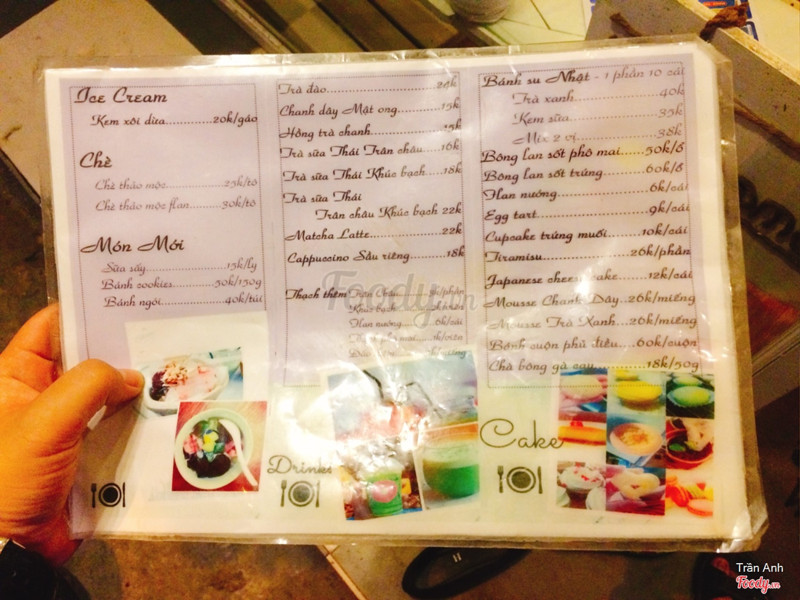 Ice Cream
Kem xôi dừa............20k/gáo
Chè
Chè thảo mộc...............25k/tô
Chè thảo mộc flan..........30k/tô
Món Mới
Sữa sấy.......................15k/ly
Bánh cookies...........50k/150g
Bánh ngói...............40k/túi
Drinks
Trà đào
Chanh dây Mật ong
Hồng trà chanh
Trà sữa Thái Trân châu.....16k
Trà sữa Thái Khúc bạch.....18k
Trà sữa Thái
Trân châu Khúc bạch 22k
Matcha Latte....................22k
Cappuccino Sầu riêng.........18k
Thạch thêm Trân Châu
Khúc bạch
Flan nướng.........6k/cái
Cake
Bánh su Nhật - 1 phần 10 cái
Trà xanh.................40k
Kem sữa.................35k
Mix 2 vị.................38k
Bông lan sốt phô mai......50k/ổ
Bông lan sốt trứng..........60k/ổ
Flan nướng....................6k/cái
Egg tart........................9k/cái
Cupcake trứng muối........10k/cái
Tiramisu...................26k/phần
Japanese cheesecake......12k/cái
Mousse Chanh Dây..26k/miếng
Mousse Trà Xanh...26k/miếng
Bánh cuộn phủ tiêu....60k/cuộn
Chà bông gà cay..........18k/50g
Foody.vn
Trần Anh
Foody.vn